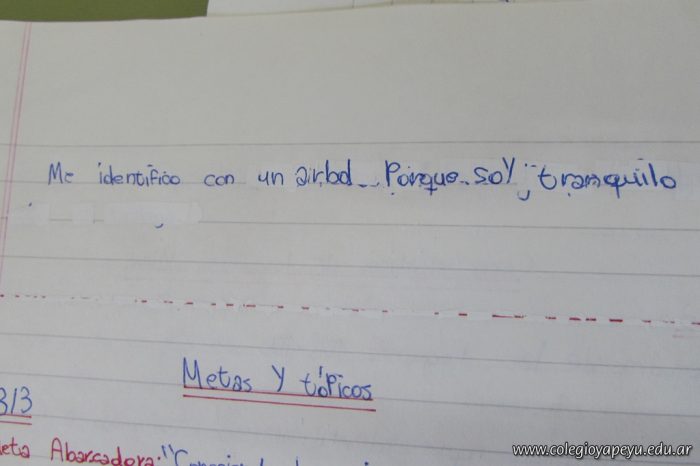 Me identifico con un airbol porque soy tranquilo
Metas y tópicos
3/3
Abarcadora: "
www.colegioyapeyu.edu.ar